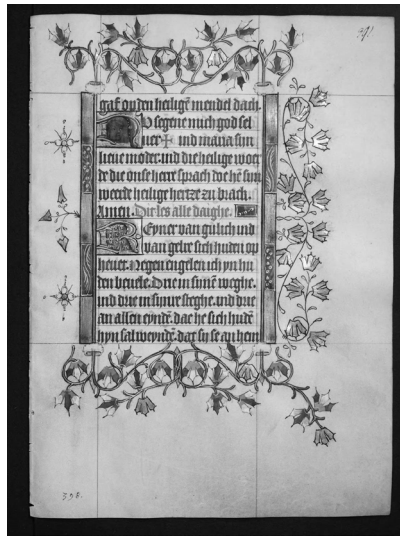 gaf ouden heiligē mendel dach.
O segene mich god sel
uer ✝ ind maria sin
lieue moder. ind die heilige woer
de die onse herr sprach doe hē sin
weerde heilige hertze zu brack.
Amen. Die les alle daighe.
Eyner van gulich ind
van gelre sich huden op
heuet. Negen engelen ich yn hu
den beuele. Drie in sinē weghe.
ind drie in synre steghe. ind drie
an allen eynde. dat he sich hude
hyn sal wendē. dat sy se an hem